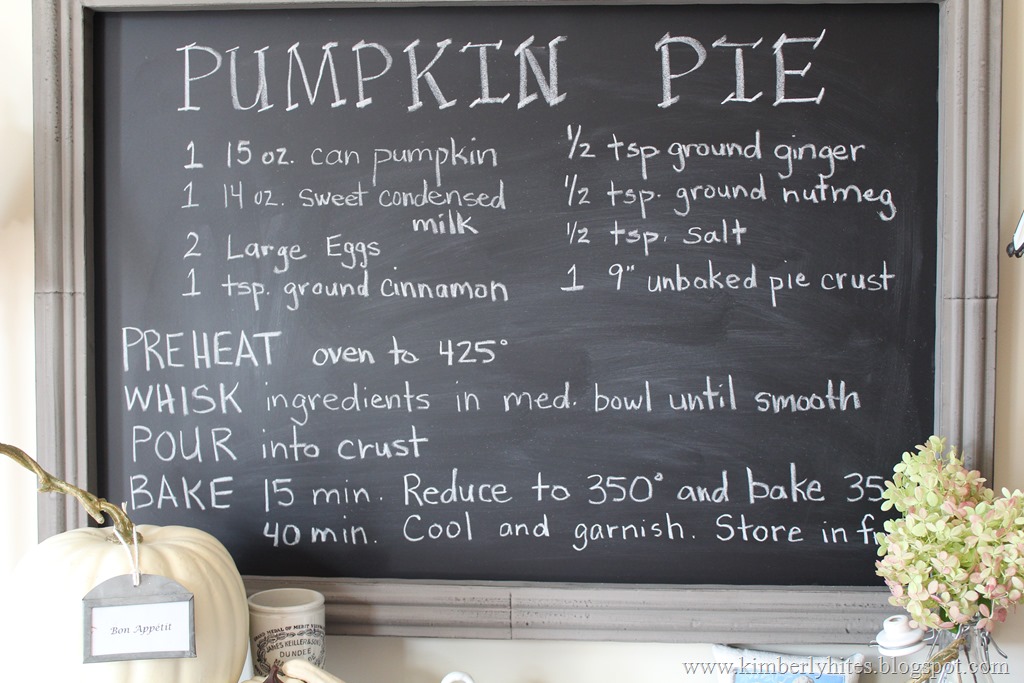 PUMPKIN PIE
1 15 oz. can pumpkin
1 14 oz. sweet condensed
milk
2 Large Eggs
1 tsp. ground cinnamon
1/2 tsp ground ginger
1/2 tsp. ground nutmeg
1/2 tsp. salt
1 9" unbaked pie crust
PREHEAT oven to 425°
WHISK ingredients in med. bowl until smooth
POUR into crust
BAKE 15 min. Reduce to 350° and bake 35
40 min. Cool and garnish. Store in
Bon Appétit
GRAND MEDAL OF MERIT
JAMES KEILLER &
DUNDEE
www.kimberlyhites.blogspot.com